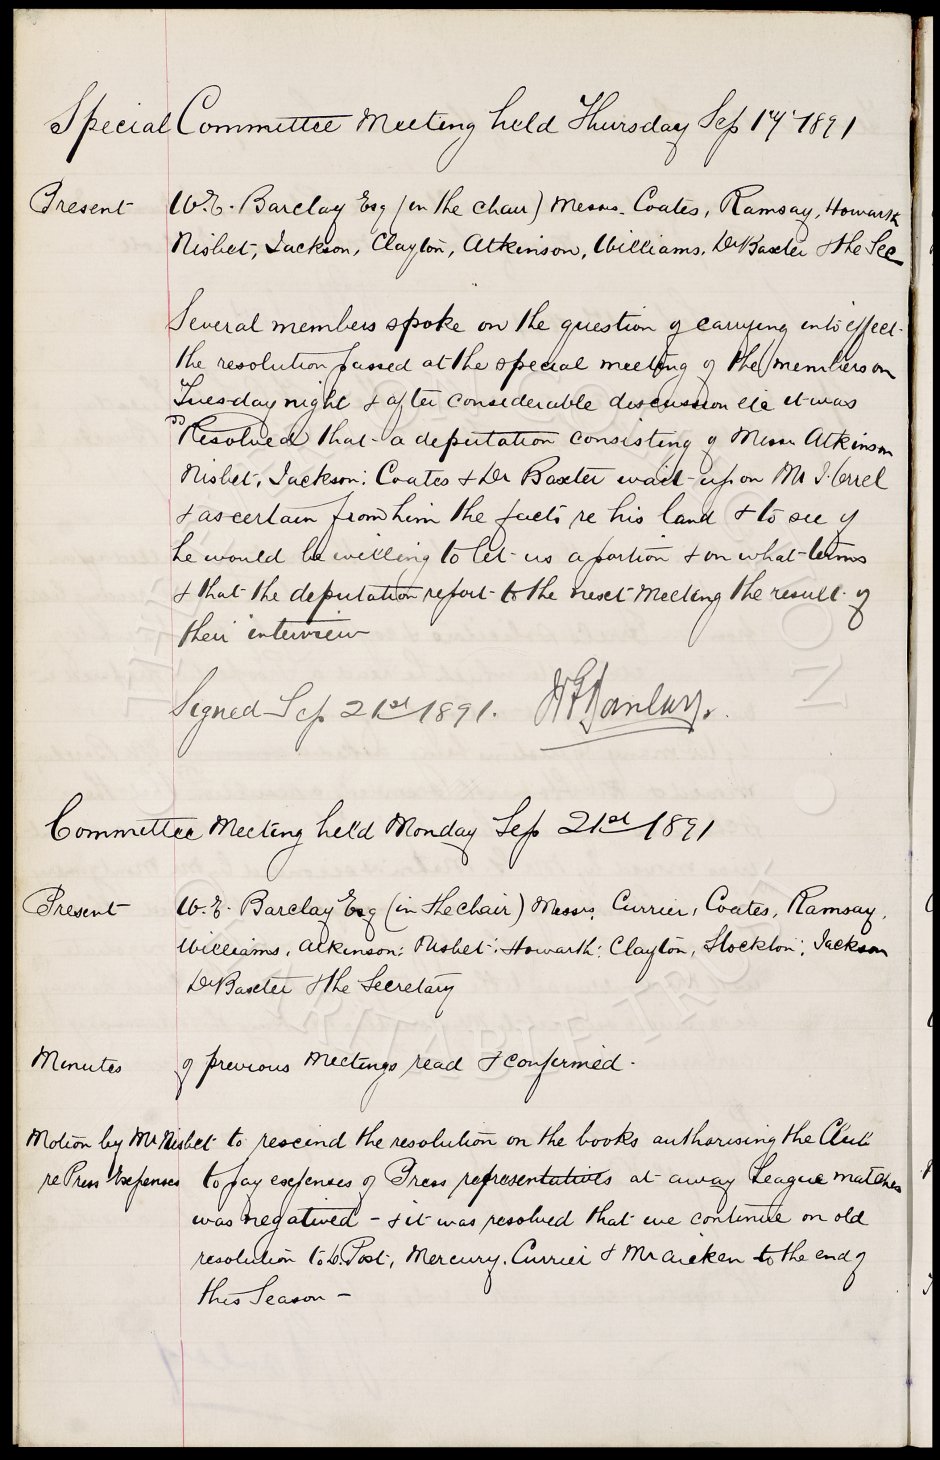 Special Committee Meeting held Thursday Sep 17th 1891
Present W.E. Barclay Esq (in the chair) Messrs. Coates, Ramsay, Howarth
Nisbet, Jackson, Clayton, Atkinson, Williams, Dr Baxter & the Sec
Several members spoke on the question of carrying into effect
the resolution passed at the special meeting of the members on
Tuesday night & after considerable discussion etc it was
Resolved that a deputation consisting of Messrs Atkinson
Nisbet, Jackson: Coates & Dr Baxter wait upon Mr J. Orrel
& ascertain from him the facts re his land & to see if
he would be willing to let us a portion & on what terms
& that the deputation report to the next Meeting the result of
their interview
Signed Sep 21st 1891.
Committee Meeting held Monday Sep 21st 1891
Present W.E. Barclay Esq (in the chair) Messrs. Currier, Coates, Ramsay,
Williams, Atkinson: Nisbet: Howarth: Clayton, Stockton: Jackson
Dr Baxter & the Secretary
Minutes of previous Meetings read & confirmed.
Motion by Mr Nisbet to rescind the resolution on the books authorising the Club
re Press Expenses to pay expenses of Press representatives at away League matches
was negatived - & it was resolved that we continue on old
resolution to D. Post, Mercury, Currier & Mr Aicken to the end of
this Season -
CHARITABLE TRUST